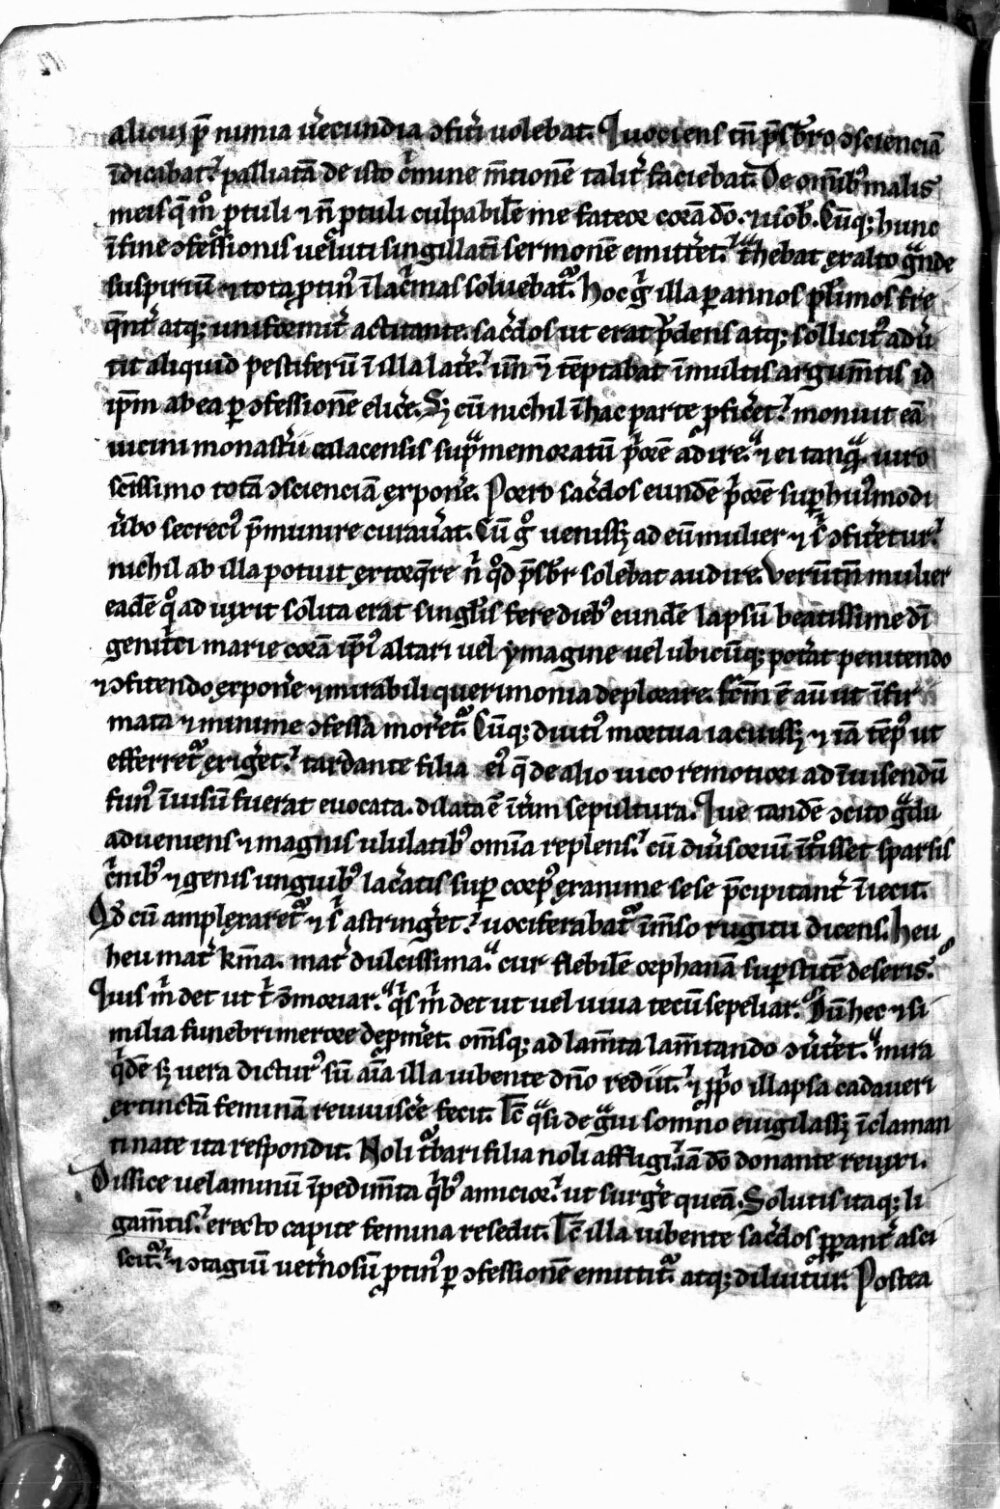 alicui p̄ nimia u̾ecundia ɔfit̾i uolebat. Quociens tn̄ p̄sb̾ro ɔscienciā
īdicabat.᾽ palliatā de isto c̾mine m̄tionē talit̾ faciebat. De omībꝰ malis
meis q̄ m̊ ptuli ⁊ n̄ ptuli culpabilē me fateor corā dō. ⁊ uob̾. Cūq; hunc
ī fine ɔfessionis ueluti singillatī sermonē emitt̾et. t̾hebat ex alto gͣnde
suspiriū ⁊ tota ꝓtinꝰ ī lac̾mas soluebat᷑. Hoc g̾ illa ꝑ annos pl̾imos fre
q̄nt̾ atq; uniformit̾ actitante. sac̾dos ut erat p̾dens atq; sollicitꝰ adu̾
tit aliquid pestiferū ī illa lat̾e.᾽ uñ ⁊ tēptabat ī multis argum̄tis id
ip̄m ab ea ꝑ ɔfessionē elic̾e. Sꝫ cū nichil ī hac parte ꝓfic̾et.᾽ monuit eā
uicini monast̾ii calacensis sup̾memoratū p̾orē adire. ⁊ ei tanqͣ uiro
sc̄issimo totā ɔscienciā expon̾e. Porro sac̾dos eundē p̾orē suꝑ huiꝰmodi
u̾bo secreciꝰ p̄munire curau̾at. Cū g̊ uenissꝫ ad eū mulier ⁊ s̾ ɔfit̾etur.᾽
nichil ab illa potuit extorq̄re n̾ qd̊ p̄sb̾r solebat audire. Verūtn̄ mulier
eadē q̊ ad uixit solita erat singl̾is fere diebꝰ eundē lapsū beatissime dī
genit̾ci marie corā ip̄iꝰ altari uel ymagine uel ubicūq; pot̾at penitendo
⁊ ɔfitendo expon̾e ⁊ mirabili querimonia deplorare. fc̄m ē aū ut īfir
mata ⁊ minime ɔfessa mor̾et᷑. Cūq; diutiꝰ mortua iacuissꝫ ⁊ iā tēpꝰ ut
efferret᷑ exig̾et.᾽ tardante filia eiꝰ q̄ de alio uico remotiori ad īuisendū
funꝰ īuisū fuerat euocata. dilata ē īt̾im sepultura. Que tandē ɔcito gͣdu
adueniens ⁊ magnis ululatibꝰ omīa replens.᾽ cū diu̾sorium īt̊isset sparsis
c̾nibꝰ ⁊ genis unguibꝰ lac̾atis suꝑ corpꝰ exanime sese p̄cipitant̾ īiecit.
Qd̾ cū amplexaret᷑ ⁊ s̾ astring̾et.᾽ uociferabat᷑ īm̄so rugitu dicens. heu
heu mat̾ km̄a. mat̾ dulcissima. cur flebilē orphanā suꝑstitē deseris.
Quis m̾ det ut t̾ ɔmoriar. qͥs m̾ det ut uel uiua tecū sepeliar. Dū hec ⁊ si
milia funebri merore depm̾et. om̄sq; ad lam̄ta lam̄tando ɔu̾t̾et. mira
qͥdē sꝫ uera dicturꝰ sū aīa illa iubente dn̄o rediit.᾽ ⁊ ꝓp̾o illapsa cadaueri
extinctā feminā reuiuisc̾e fecit. Tc̄ qͣsi de gͣui somno euigilassꝫ īclaman
ti nate ita respondit. Noli t᷑bari filia noli affligi. iā dō donante reuixi.
Dissice uelaminū īpedim̄ta qͥbꝰ amicior.᾽ ut surg̾e queā. Solutis itaq; li
gam̄tis.᾽ erecto capite femina resedit. Tc̄ illa iubente sac̾dos ꝓꝑant̾ asci
scit᷑.᾽ ⁊ ɔtagiū uet̾nosū ꝓtinꝰ ꝑ ɔfessionē emittit᷑ atq; diluitur. Postea